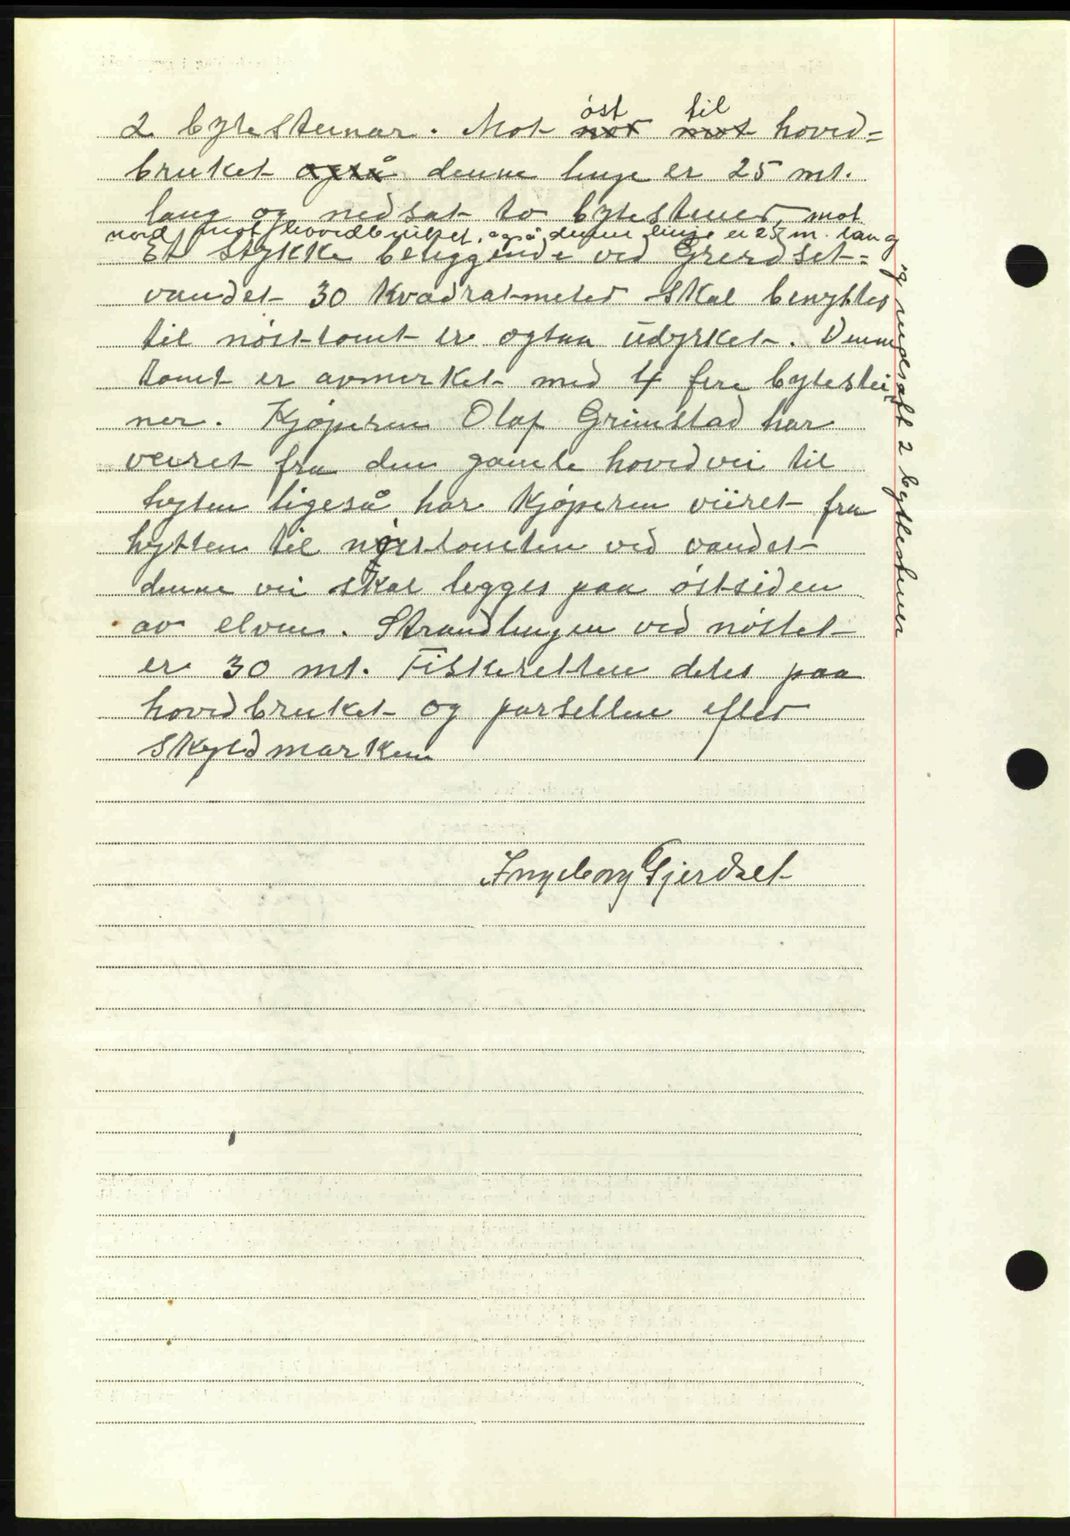 2 bytesteinar. Mot øst ~~nord~~ til ~~mot~~ hoved=
bruket ~~også~~ denne linje er 25 mt.
lang og nedsat to bytestener, mot
nord mot hovedbruket, også denne linje er 25 m. lang
og nedsatt 2 byttestener
Et stykke beliggende ved Gjerdset=
vandet 30 kvadratmeter skal benyttes
til nøsttomt er ogsaa udyrket. Denne
tomt er avmerket med 4 fire bytestei
ner. Kjøperen Olaf Grimstad har
veiret fra den gamle hovedvei til
hyten ligeså har kjøperen veiret fra
hytten til nøsttomten ved vandet
denne vei skal legges paa østsiden
av elven. Strandlinjen ved nøstet
er 30 mt. Fiskeretten deles paa
hovedbruket og parsellen efter
skyldmarken
Ingeborg Gjerdset